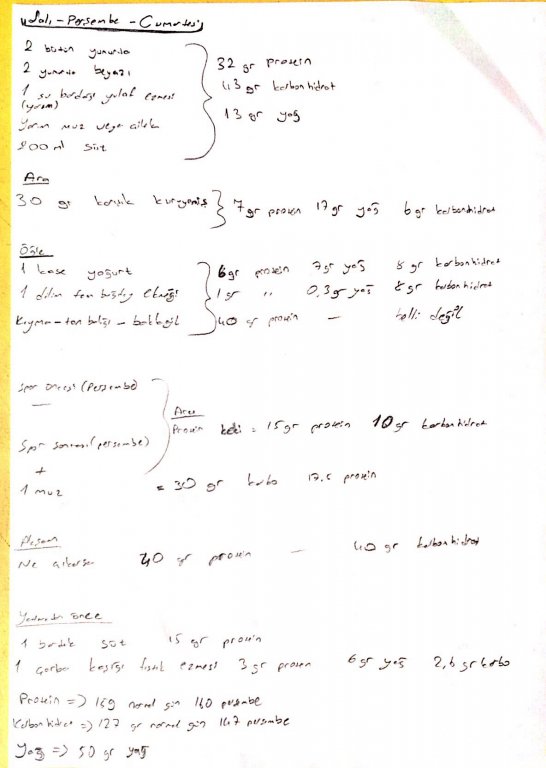 Salı - Perşembe - Cumartesi
2 bütün yumurta
2 yumurta beyazı
1 su bardağı yulaf ezmesi
(yarım)
Yarım muz veya çilek
200 ml süt
32 gr protein
43 gr karbonhidrat
13 gr yağ
Ara
30 gr karışık kuruyemiş 7 gr protein 17 gr yağ 6 gr karbonhidrat
Öğle
1 kase yoğurt 6 gr protein 7 gr yağ 8 gr karbonhidrat
1 dilim tam buğday ekmeği 1 gr " 0,3 gr yağ 8 gr karbonhidrat
Kıyma - ton balığı - baklagil 40 gr protein — belli değil
Spor öncesi (Perşembe)
—
Spor sonrası (perşembe)
+
1 muz
Ara
Protein keki = 15 gr protein 10 gr karbonhidrat
= 30 gr karbo 17,5 protein
Akşam
Ne çıkarsa 40 gr protein — 40 gr karbonhidrat
Yatmadan önce
1 bardak süt 15 gr protein
1 çorba kaşığı fıstık ezmesi 3 gr protein 6 gr yağ 2,6 gr karbo
Protein => 159 normal gün 160 perşembe
Karbonhidrat => 127 gr normal gün 147 perşembe
Yağ => 50 gr yağ